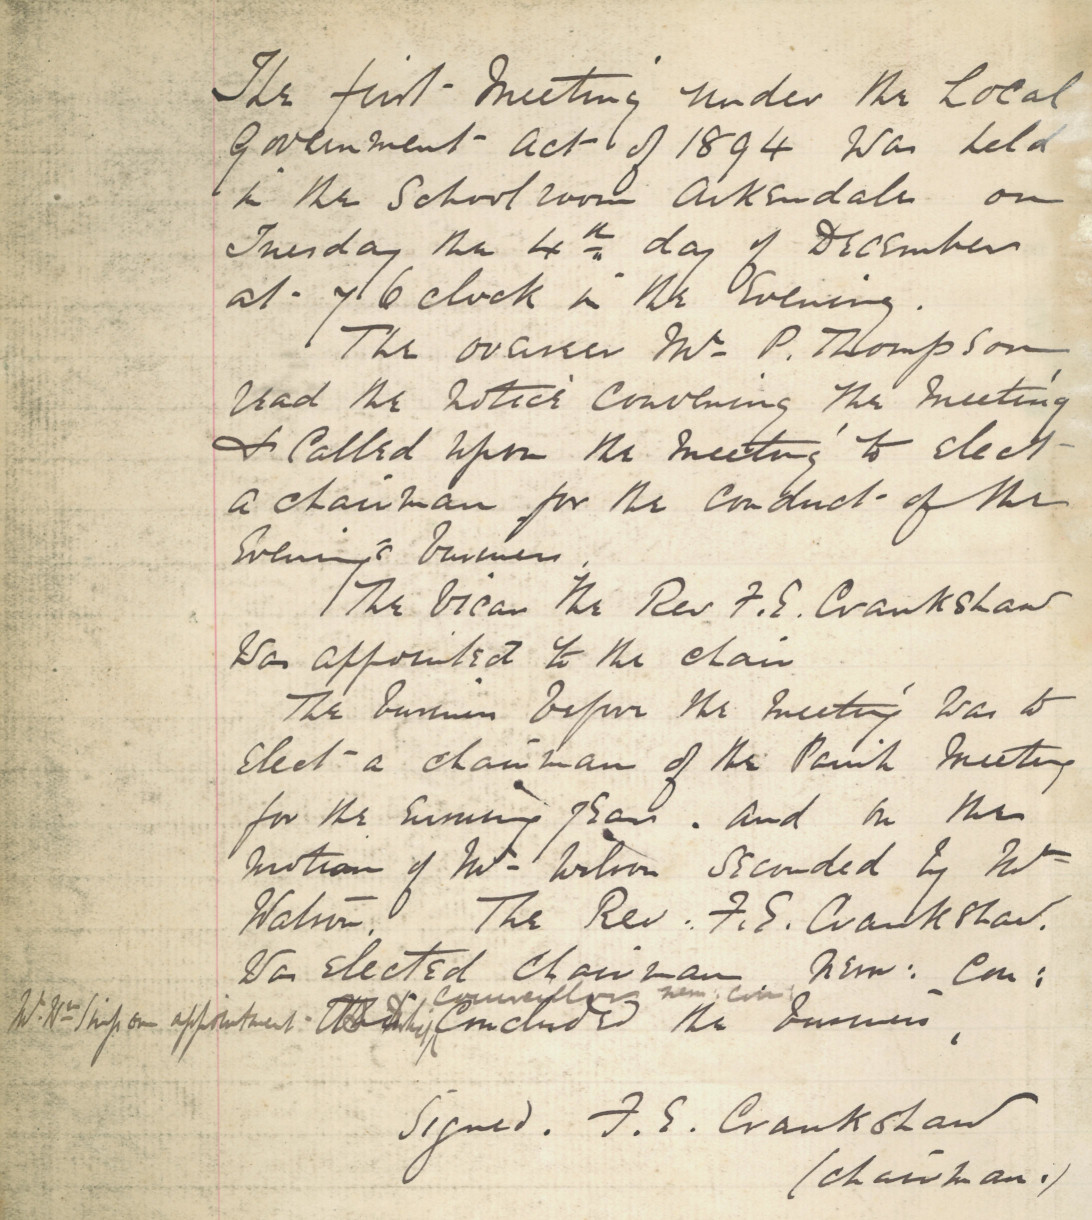 The first Meeting under the Local
Government Act of 1894 was held
in the Schoolroom Arkendale on
Tuesday the 4th day of December
at 7 O clock in the Evening.
The overseer Mr P. Thompson
read the notice convening the Meeting
& Called upon the Meeting to elect
a chairman for the conduct of the
Evening's business.
The Vicar the Rev F. E. Crankshaw
was appointed to the chair
The business before the meeting was to
Elect a chairman of the Parish Meeting
for the ensuing year. and on the
motion of Mr Wilson seconded by Mr
Watson. The Rev. F. E. Crankshaw.
Was elected chairman nem: con:
councillor nem: con:
Mr Wm Simpson appointment Concluded the business.
Signed. F. E. Crankshaw
(chairman.)